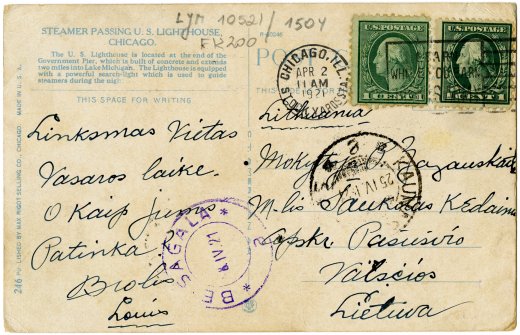 LYM 10521/1504
FK200
STEAMER PASSING U. S. LIGHTHOUSE,
CHICAGO.
The U. S. Lighthouse is located at the end of the
Government Pier, which is built of concrete and extends
two miles into Lake Michigan. The Lighthouse is equipped
with a powerful search-light which is used to guide
steamers during the night.
THIS SPACE FOR WRITING
Linksmas Vietas
Vasaros laike.
O Kaip jums
Patinka
Brolis
Louis
246 PUBLISHED BY MAX RIGOT SELLING CO., CHICAGO. MADE IN U. S. A.
R-69046
POST
CHICAGO, ILL.
APR 2
11 AM
1921
U.S. POSTAGE
1 CENT 1
U.S. POSTAGE
1 CENT 1
Lithuania
KAUN
25 IV
Mokyt
M-lis Saukotas Kedainių
Apskr Pasusvio
Valsčios
Lietuva
BESAGALA
8 IV 21